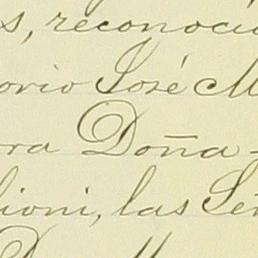 s, reconoci
orio José M
ra Doña
lioni, las Se